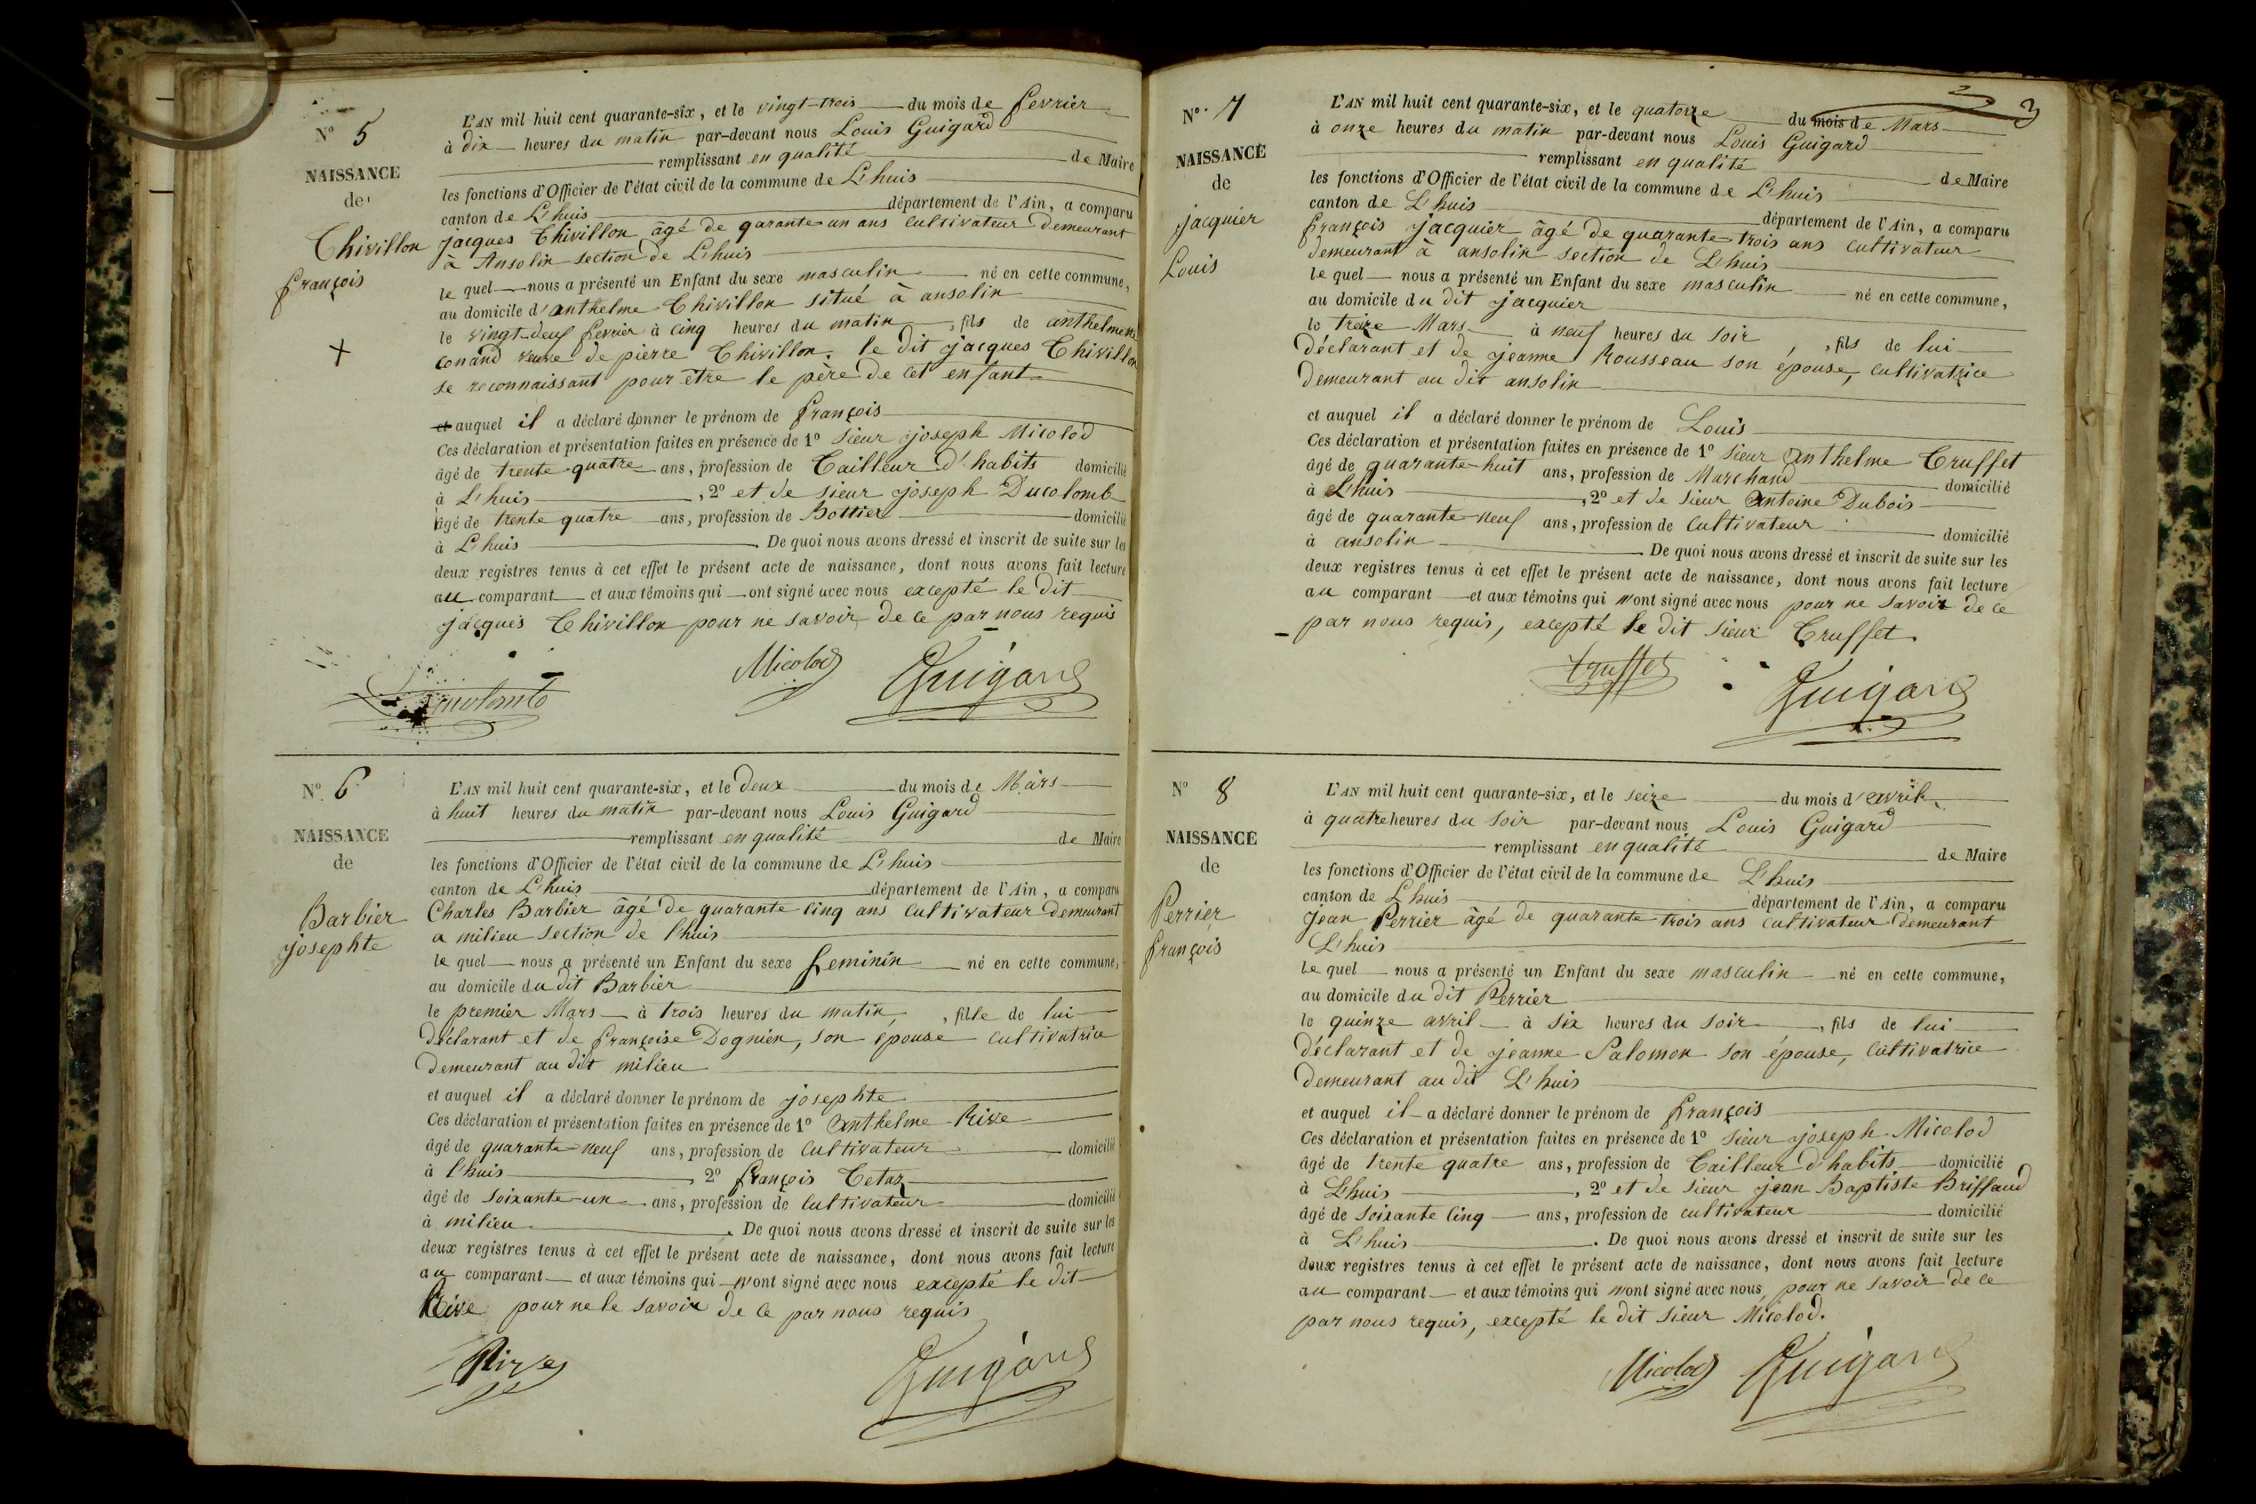 N° 5
NAISSANCE
de
Chivillon
françois
L'AN mil huit cent quarante-six, et le vingt-trois du mois de fevrier
à dix heures du matin par-devant nous Louis Guigard
remplissant en qualité de Maire
les fonctions d'Officier de l'état civil de la commune de L'huis
canton de L'huis département de l'Ain, a comparu
jacques Chivillon âgé de qarante un ans cultivateur demeurant
à Ansolin section de L'huis
le quel nous a présenté un Enfant du sexe masculin né en cette commune,
au domicile d'anthelme Chivillon situé à ansolin
le vingt-deux fevrier à cinq heures du matin, fils de anthelmette
conand veuve de pierre Chivillon. le dit jacques Chivillon
se reconnaissant pour être le père de cet enfant
et auquel il a déclaré donner le prénom de françois
Ces déclaration et présentation faites en présence de 1° Sieur joseph Micolod
âgé de trente-quatre ans, profession de Tailleur d'habits domicilié
à L'huis, 2° et de sieur joseph Ducolomb
âgé de trente quatre ans, profession de Bottier domicilié
à L'huis. De quoi nous avons dressé et inscrit de suite sur les
deux registres tenus à cet effet le présent acte de naissance, dont nous avons fait lecture
au comparant et aux témoins qui ont signé avec nous excepté le dit
jacques Chivillon pour ne savoir de ce par nous requis
Ducolomb Micolod Guigard
N° 6
NAISSANCE
de
Barbier
josephte
L'AN mil huit cent quarante-six, et le deux du mois de Mars
à huit heures du matin par-devant nous Louis Guigard
remplissant en qualité de Maire
les fonctions d'Officier de l'état civil de la commune de L'huis
canton de L'huis département de l'Ain, a comparu
Charles Barbier âgé de quarante cinq ans cultivateur demeurant
a milieu section de l'huis
le quel nous a présenté un Enfant du sexe feminin né en cette commune,
au domicile du dit Barbier
le premier Mars à trois heures du matin, fille de lui
déclarant et de françoise Dognien, son épouse cultivatrice
demeurant au dit milieu
et auquel il a déclaré donner le prénom de josephte
Ces déclaration et présentation faites en présence de 1° Anthelme Rive
âgé de quarante-neuf ans, profession de cultivateur domicilié
à l'huis, 2° françois Tetaz
âgé de soixante-un ans, profession de cultivateur domicilié
à milieu. De quoi nous avons dressé et inscrit de suite sur les
deux registres tenus à cet effet le présent acte de naissance, dont nous avons fait lecture
au comparant et aux témoins qui n'ont signé avec nous excepté le dit
Rive pour ne le savoir de ce par nous requis
Rive Guigard
3
N° 7
NAISSANCE
de
jacquier
Louis
L'AN mil huit cent quarante-six, et le quatorze du mois de Mars
à onze heures du matin par-devant nous Louis Guigard
remplissant en qualité de Maire
les fonctions d'Officier de l'état civil de la commune de L'huis
canton de L'huis département de l'Ain, a comparu
françois jacquier âgé de quarante-trois ans cultivateur
demeurant à ansolin section de L'huis
le quel nous a présenté un Enfant du sexe masculin né en cette commune,
au domicile du dit jacquier
le treize Mars à neuf heures du soir, fils de lui
déclarant et de jeanne Rousseau son épouse, cultivatrice
demeurant au dit ansolin
et auquel il a déclaré donner le prénom de Louis
Ces déclaration et présentation faites en présence de 1° Sieur Anthelme Truffet
âgé de quarante-huit ans, profession de Marchand domicilié
à L'huis, 2° et de sieur Antoine Dubois
âgé de quarante-neuf ans, profession de cultivateur domicilié
à ansolin. De quoi nous avons dressé et inscrit de suite sur les
deux registres tenus à cet effet le présent acte de naissance, dont nous avons fait lecture
au comparant et aux témoins qui n'ont signé avec nous pour ne savoir de ce
par nous requis, excepté le dit sieur Truffet.
truffet Guigard
N° 8
NAISSANCE
de
Perrier
françois
L'AN mil huit cent quarante-six, et le seize du mois d'avril
à quatre heures du soir par-devant nous Louis Guigard
remplissant en qualité de Maire
les fonctions d'Officier de l'état civil de la commune de L'huis
canton de L'huis département de l'Ain, a comparu
jean Perrier âgé de quarante-trois ans cultivateur demeurant
L'huis
le quel nous a présenté un Enfant du sexe masculin né en cette commune,
au domicile du dit Perrier
le quinze avril à six heures du soir, fils de lui
déclarant et de jeanne Salomon son épouse, cultivatrice
demeurant au dit L'huis
et auquel il a déclaré donner le prénom de françois
Ces déclaration et présentation faites en présence de 1° Sieur joseph Micolod
âgé de trente quatre ans, profession de Tailleur d'habits domicilié
à L'huis, 2° et de sieur jean Baptiste Briffaud
âgé de soixante cinq ans, profession de cultivateur domicilié
à L'huis. De quoi nous avons dressé et inscrit de suite sur les
deux registres tenus à cet effet le présent acte de naissance, dont nous avons fait lecture
au comparant et aux témoins qui n'ont signé avec nous, pour ne savoir de ce
par nous requis, excepté le dit sieur Micolod.
Micolod Guigard